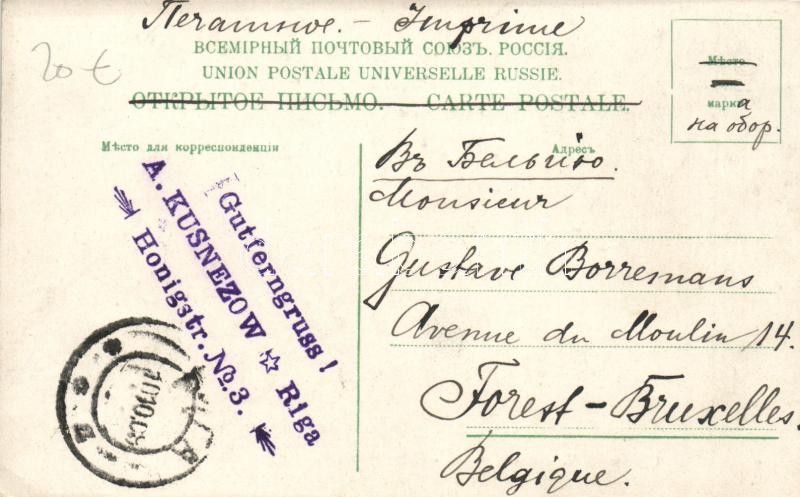 Печатное. – Imprimé
20 €
ВСЕМІРНЫЙ ПОЧТОВЫЙ СОЮЗЪ. РОССІЯ.
UNION POSTALE UNIVERSELLE RUSSIE.
ОТКРЫТОЕ ПИСЬМО. — CARTE POSTALE.
Мѣсто
марка
на обор.
Мѣсто для корреспонденціи
Адресъ
Въ Бельгію.
Monsieur
Gustave Borremans
Avenue du Moulin 14.
Forest-Bruxelles.
Belgique.
Gutferngruss!
A. KUSNEZOW ☆ Riga
Honigstr. №3.